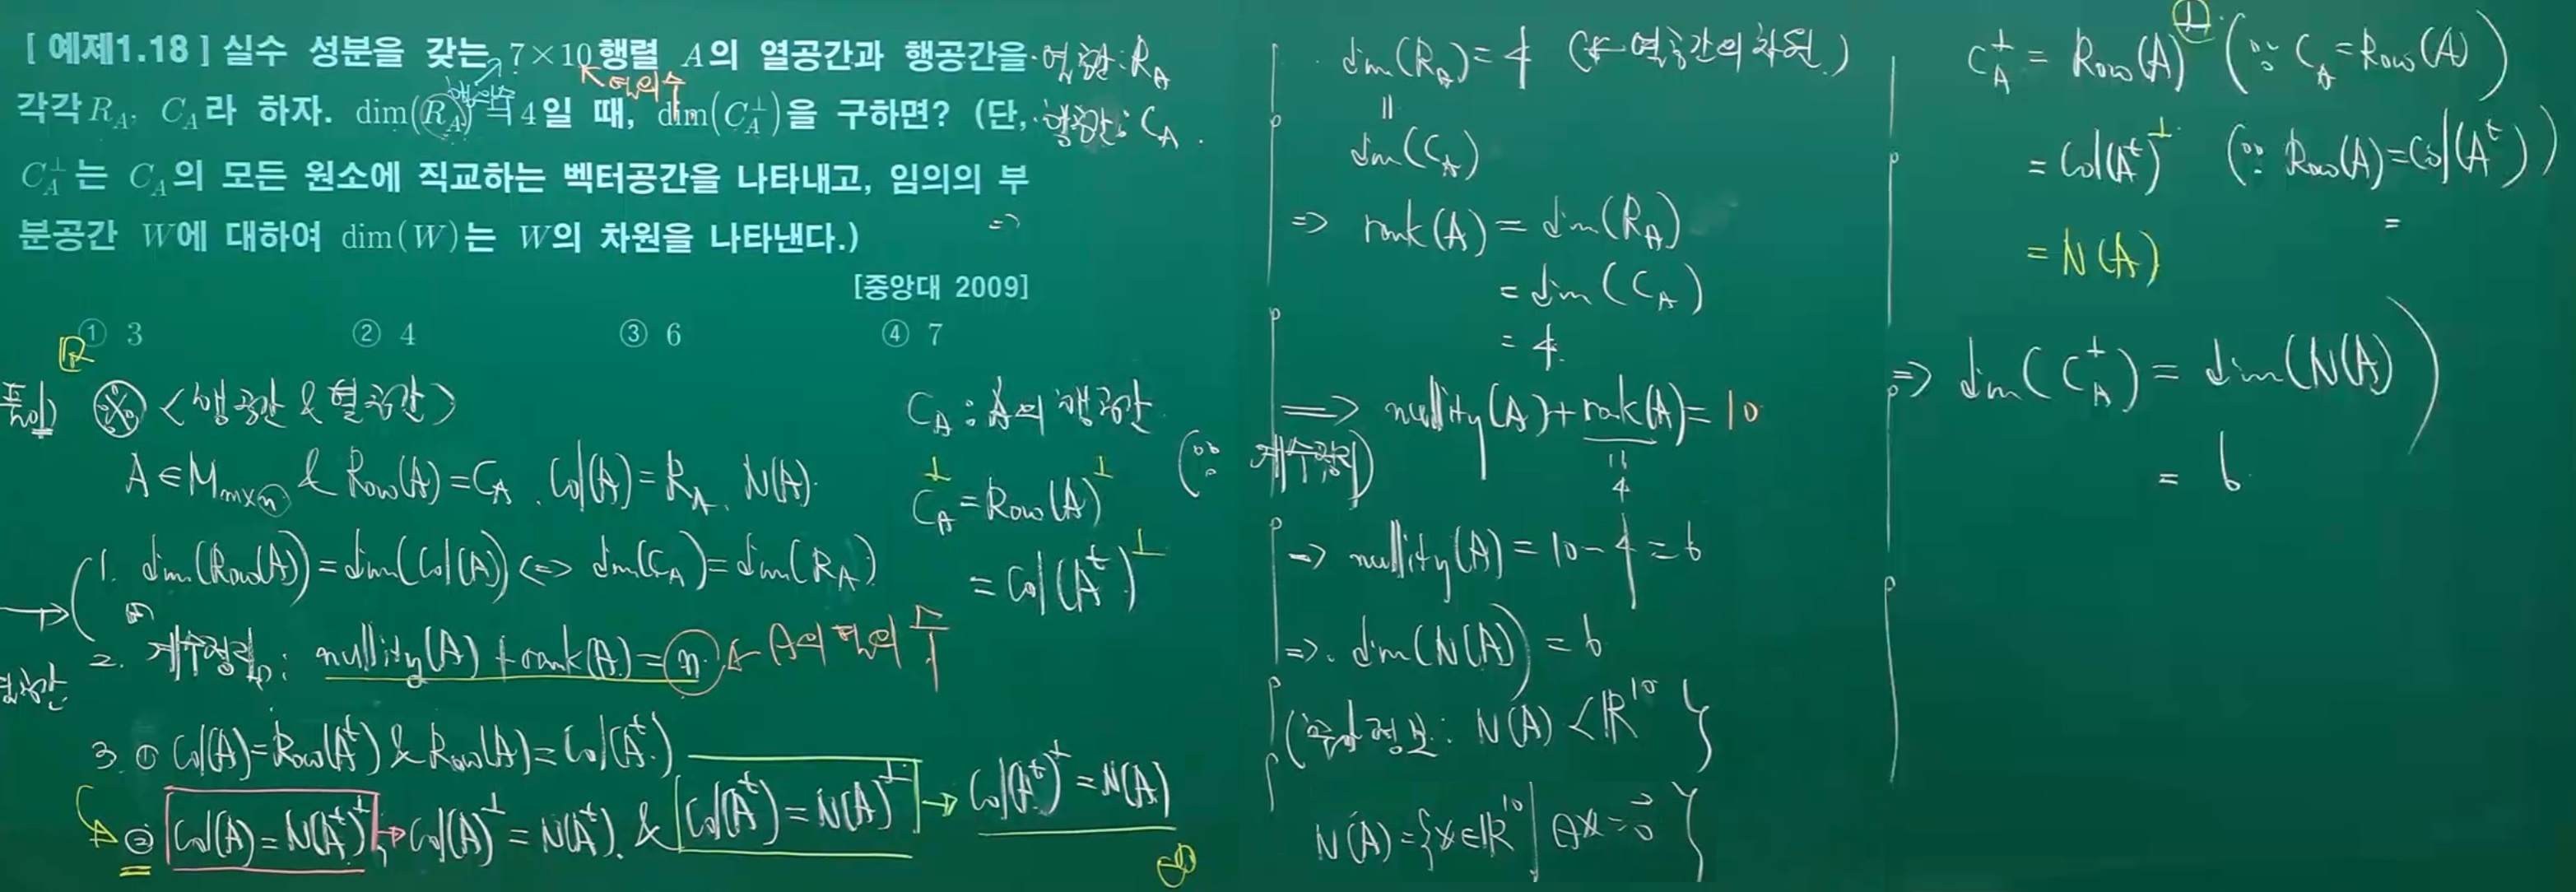 [ 예제1.18 ] 실수 성분을 갖는 7×10 행렬 A의 열공간과 행공간을
각각 R_A, C_A라 하자. dim(R_A)=4일 때, dim(C_A^⊥)을 구하면? (단,
C_A^⊥는 C_A의 모든 원소에 직교하는 벡터공간을 나타내고, 임의의 부
분공간 W에 대하여 dim(W)는 W의 차원을 나타낸다.)
[중앙대 2009]
① 3 ② 4 ③ 6 ④ 7
열의 수
열공간: R_A
행공간: C_A
⇒
풀이) <행공간 & 열공간>
A∈M_{m×n} & Row(A)=C_A, Col(A)=R_A, N(A).
1. dim(Row(A))=dim(Col(A)) ⇔ dim(C_A)=dim(R_A)
2. 계수정리: nullity(A)+rank(A)=n ← A의 열의 수
3. ① Col(A)=Row(A^t) & Row(A)=Col(A^t)
② Col(A)=N(A^t)^⊥ → Col(A)^⊥=N(A^t). & Col(A^t)=N(A)^⊥ → Col(A^t)^⊥=N(A)
C_A: A의 행공간
C_A^⊥=Row(A)^⊥
=Col(A^t)^⊥
dim(R_A)=4 (← 열공간의 차원)
||
dim(C_A)
⇒ rank(A)=dim(R_A)
=dim(C_A)
=4.
⇒ nullity(A)+rank(A)=10
(∵ 계수정리)
||
4
⇒ nullity(A)=10-4=6
⇒ dim(N(A))=6
(추가정보: N(A)<ℝ^10)
N(A)={x∈ℝ^10 | Ax=0}
C_A^⊥=Row(A)^⊥ (∵ C_A=Row(A))
=Col(A^t)^⊥ (∵ Row(A)=Col(A^t))
=
=N(A)
⇒ dim(C_A^⊥)=dim(N(A))
=6.